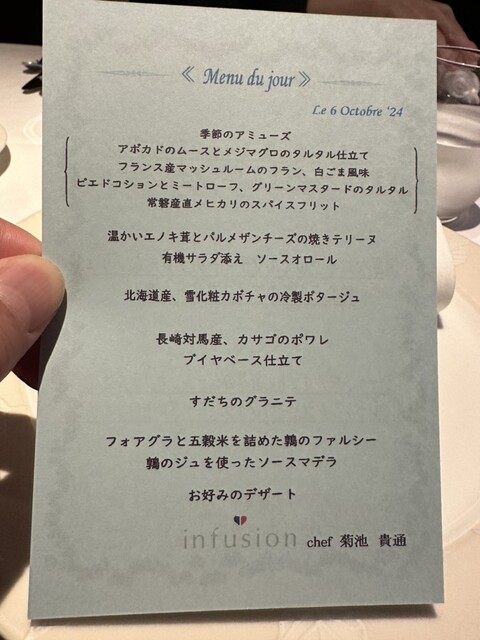 《 Menu du jour 》
Le 6 Octobre '24
季節のアミューズ
アボカドのムースとメジマグロのタルタル仕立て
フランス産マッシュルームのフラン、白ごま風味
ピエドコションとミートローフ、グリーンマスタードのタルタル
常磐産直メヒカリのスパイスフリット
温かいエノキ茸とパルメザンチーズの焼きテリーヌ
有機サラダ添え　ソースオロール
北海道産、雪化粧カボチャの冷製ポタージュ
長崎対馬産、カサゴのポワレ
ブイヤベース仕立て
すだちのグラニテ
フォアグラと五穀米を詰めた鶉のファルシー
鶉のジュを使ったソースマデラ
お好みのデザート
infusion chef 菊池 貴通